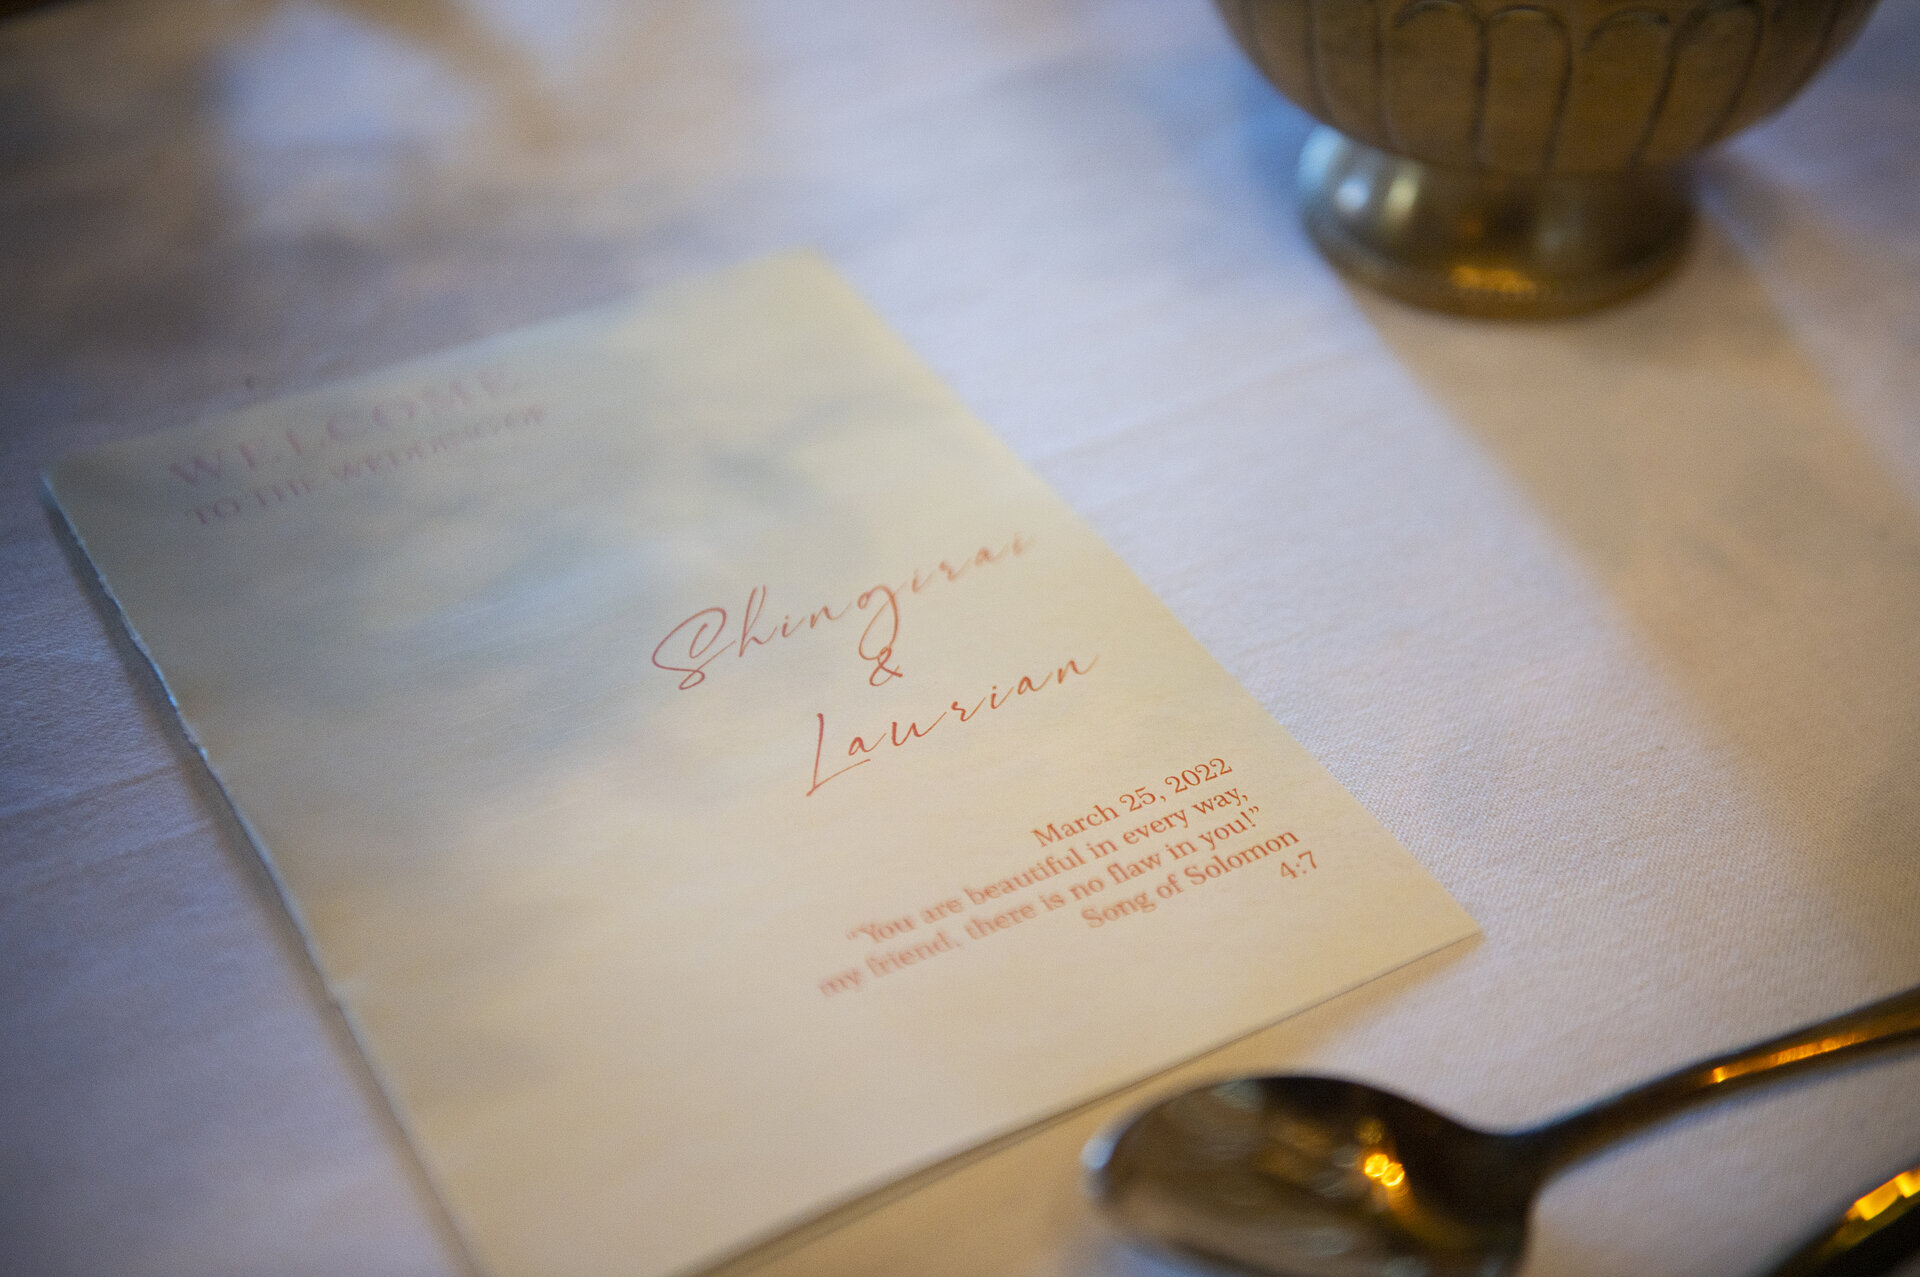 WELCOME
TO THE WEDDING OF
Shingirai
&
Laurian
March 25, 2022
“You are beautiful in every way,
my friend, there is no flaw in you!”
Song of Solomon
4:7